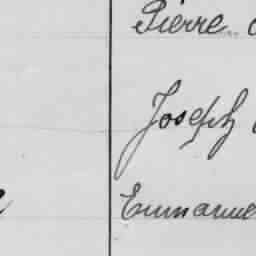 Pierre
Joseph
Emmanue